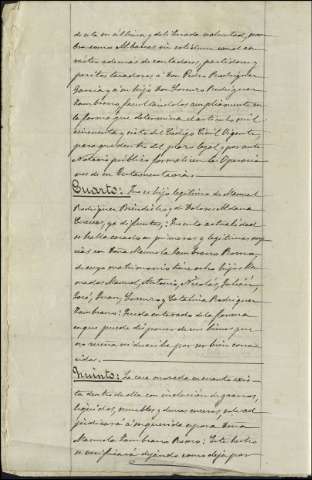 de esta su última y deliberada voluntad, nom-
bra como Albaceas
además de contadores, partidores y
peritos tasadores á Don Pedro Rodríguez
García y á su hijo Don Lorenzo Rodríguez
Zambrano facultándoles ampliamente en
la forma que determina el artículo mil
cincuenta y siete del Código Civil Vigente,
para que dentro del plazo legal y por ante
Notario público formalicen la Operacio-
nes de su Testamentaría.
Cuarto: Que es hijo legítimo de Manuel
Rodríguez y de Dolores
ya difuntos; Que en la actualidad
se halla casado en primeras y legítimas nup-
cias con Doña Manuela Zambrano Romo,
de cuyo matrimonio tiene ocho hijos lla-
mados Manuel, Antonio, Nicolás, Julián,
José, Juan, Lorenzo y Catalina Rodríguez
Zambrano: Queda enterado de la forma
en que puede disponer de sus bienes que
no reseña ni describe por ser bien cono-
cidos.
Quinto: La casa morada en cuanto exis-
ta dentro de ella con inclusión de granos,
líquidos, muebles y dinero, se le ad-
judicará á mi querida esposa Doña
Manuela Zambrano Romo: Este hecho
se verificará dejando como dejo por